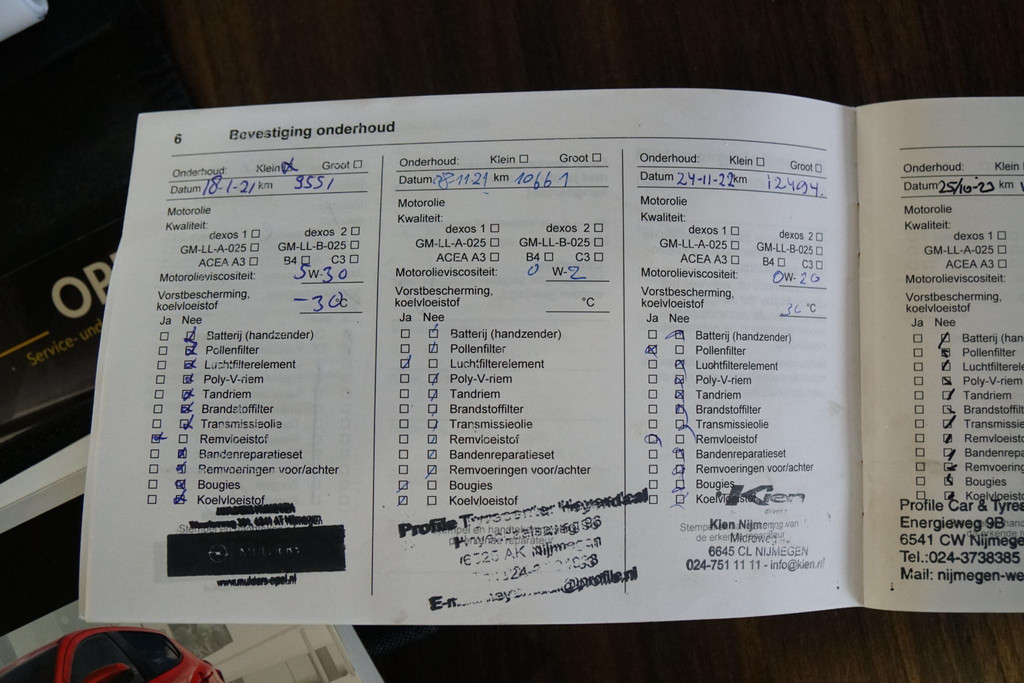 6 Bevestiging onderhoud
Onderhoud: Klein Groot
Datum 18-1-21 km 9551
Motorolie
Kwaliteit:
dexos 1 dexos 2
GM-LL-A-025 GM-LL-B-025
ACEA A3 B4 C3
Motorolieviscositeit: 5W-30
Vorstbescherming,
koelvloeistof -30°C
Ja Nee
Batterij (handzender)
Pollenfilter
Luchtfilterelement
Poly-V-riem
Tandriem
Brandstoffilter
Transmissieolie
Remvloeistof
Bandenreparatieset
Remvoeringen voor/achter
Bougies
Koelvloeistof
MULDERS
www.mulders-opel.nl
Onderhoud: Klein Groot
Datum 8-11-21 km 10661
Motorolie
Kwaliteit:
dexos 1 dexos 2
GM-LL-A-025 GM-LL-B-025
ACEA A3 B4 C3
Motorolieviscositeit: 0 W-2
Vorstbescherming,
koelvloeistof °C
Ja Nee
Batterij (handzender)
Pollenfilter
Luchtfilterelement
Poly-V-riem
Tandriem
Brandstoffilter
Transmissieolie
Remvloeistof
Bandenreparatieset
Remvoeringen voor/achter
Bougies
Koelvloeistof
Profile Tyrecenter Heyendaal
6525 AK Nijmegen
@profile.nl
Onderhoud: Klein Groot
Datum 24-11-22 km 12494.
Motorolie
Kwaliteit:
dexos 1 dexos 2
GM-LL-A-025 GM-LL-B-025
ACEA A3 B4 C3
Motorolieviscositeit: 0W-20
Vorstbescherming,
koelvloeistof °C
Ja Nee
Batterij (handzender)
Pollenfilter
Luchtfilterelement
Poly-V-riem
Tandriem
Brandstoffilter
Transmissieolie
Remvloeistof
Bandenreparatieset
Remvoeringen voor/achter
Bougies
Koelvloeistof
Kien
Kien Nijmegen
6645 CL NIJMEGEN
024-751 11 11 - info@kien.nl
Onderhoud: Klein
Datum 25/10-23 km
Motorolie
Kwaliteit:
dexos 1
GM-LL-A-025
ACEA A3
Motorolieviscositeit:
Vorstbescherming,
koelvloeistof
Ja Nee
Batterij (han
Pollenfilter
Luchtfilterele
Poly-V-riem
Tandriem
Brandstoffilt
Transmissie
Remvloeist
Bandenrepa
Remvoering
Bougies
Koelvloeist
Profile Car & Tyre
Energieweg 9B
6541 CW Nijmege
Tel.:024-3738385
Mail: nijmegen-we
OP
Service- und